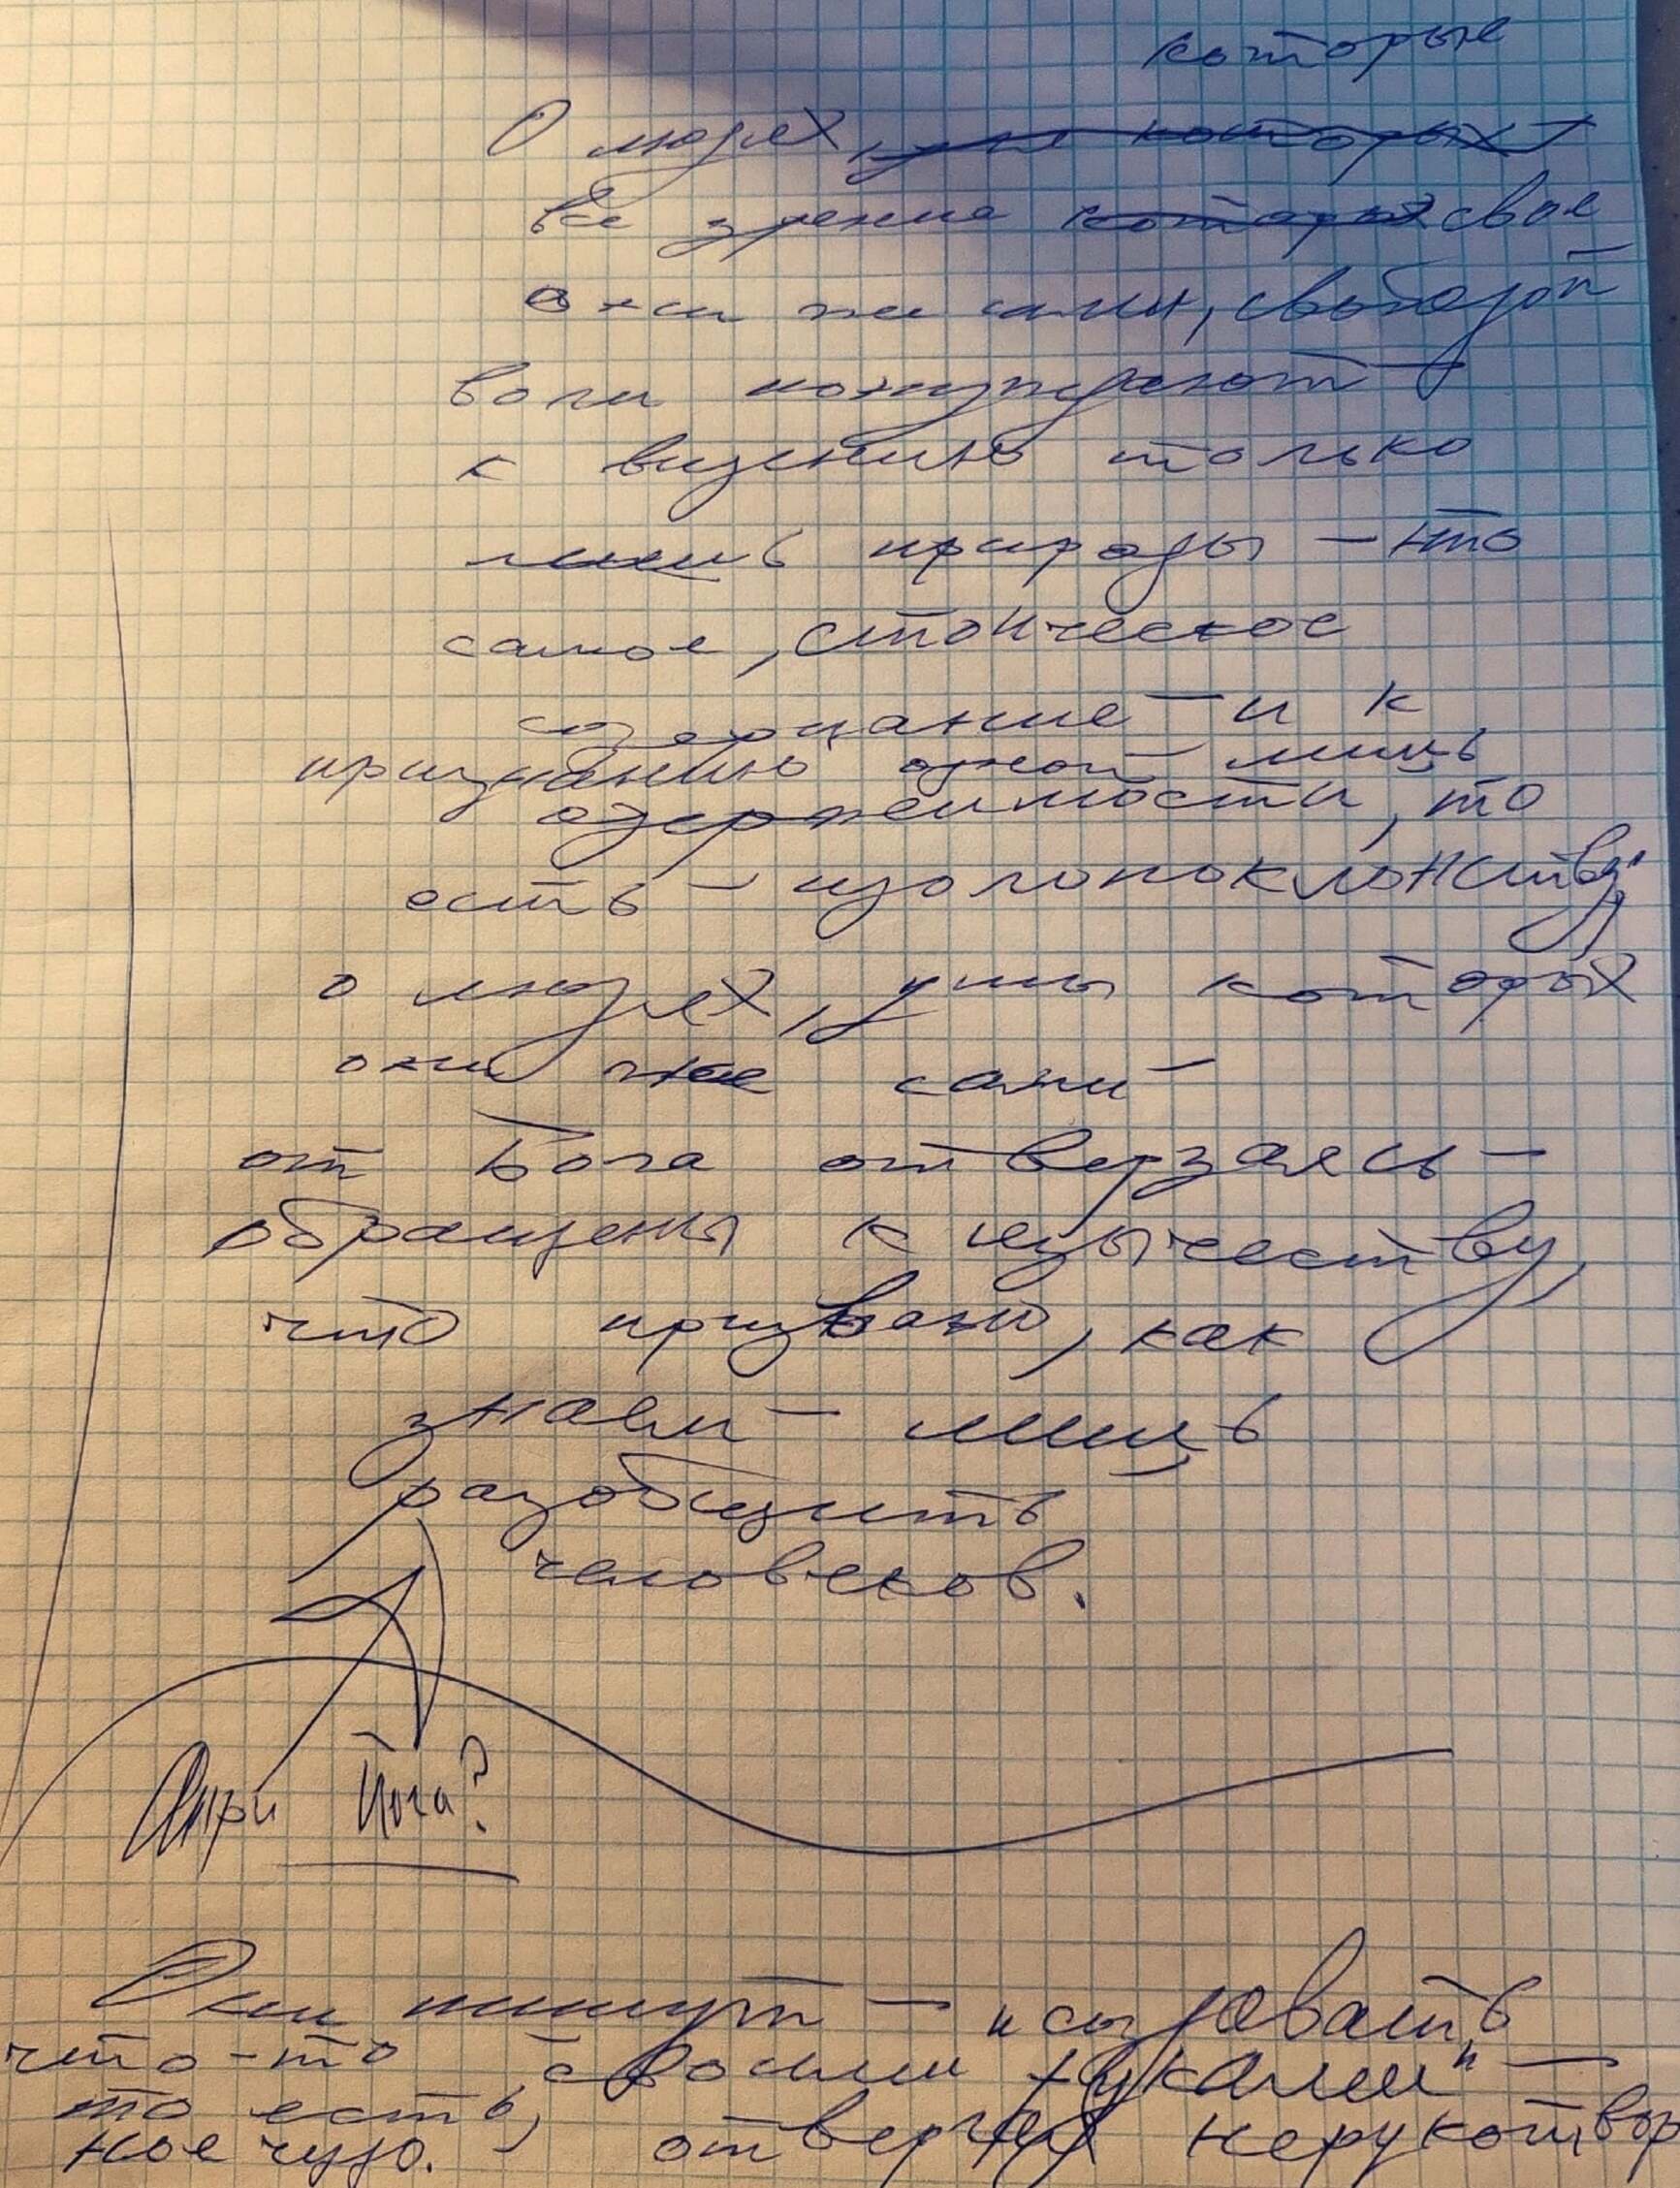 которые
О людях, уже которых
все зрение которых свое
они же сами, свободой
воли понуждают
к видению только
лишь природы — что
самое, стоическое
созерцание — и к
признанию одной лишь
одержимости, то
есть — идолопоклонству;
о людях, умы которых
они же сами —
от Бога отверзаясь —
обращены к язычеству,
что призвано, как
знаем — лишь
разобщить
человеков.
Анри Йога?
Они пишут — и создавать
что-то "своими руками" —
то есть, отвергая нерукотвор
ное чудо.